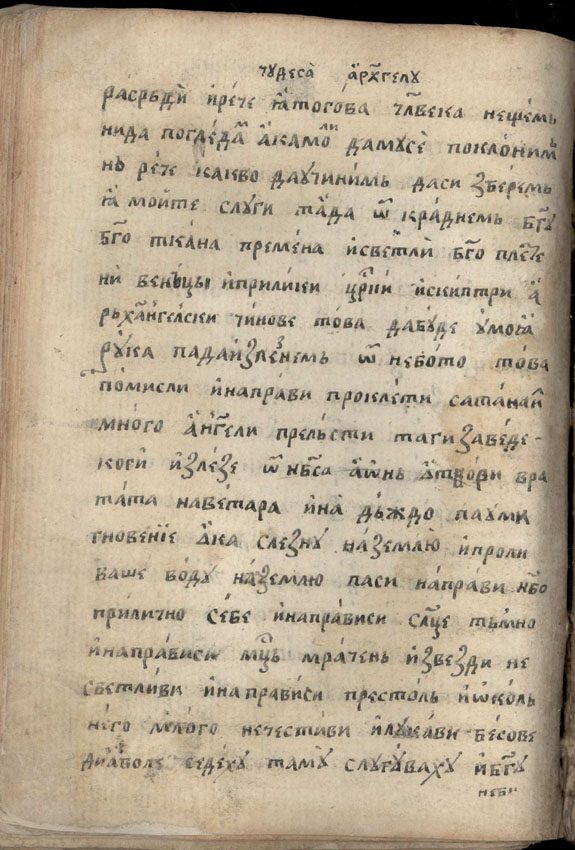 чꙋдеса̀ а҆рха҃гелꙋ
расръди̏ и҆рече ꙗ҆тогова чл҃века нещемь
нида погледа а҆камоли дамꙋсѐ поклонимь
нъ рече какво даꙋчинимь даси збѣремь
ꙗ҆ моите слꙋги та́да ѿ кра́днемь бг҃ꙋ
бг҃о ткана премена и҆светли бг҃о плете
ни венъцы и҆прилики цр҃ни и҆скиптри а҆
рьха҃нгелски чинове това дабꙋде ꙋ҆моꙗ҆
рꙋка пада и҆злеземь ѿ небото това
помисли и҆направи проклети сатанаи҃л
много а҆нг҃ели прелъсти таги заведе-
коги̏ и҆злезе ѿ нб҃са а҆ѡ҆нь ѿтвори вра
тата наветара и҆на̀ дъждо паꙋми
гновенїе а҆ка слезнꙋ наземлю и҆проли
ваше водꙋ наземлю паси направи нб҃о
прилично себе и҆направиси слц҃е тьмно
и҆направиси мц҃ъ мрачень и҆звезди не
светливи и҆направиси престолъ и҆ѡ҆колъ
него млого нечестиви и҆лꙋкави бесове
диаволе седехꙋ тамꙋ слꙋгꙋвахꙋ и҆бг҃ꙋ
неби